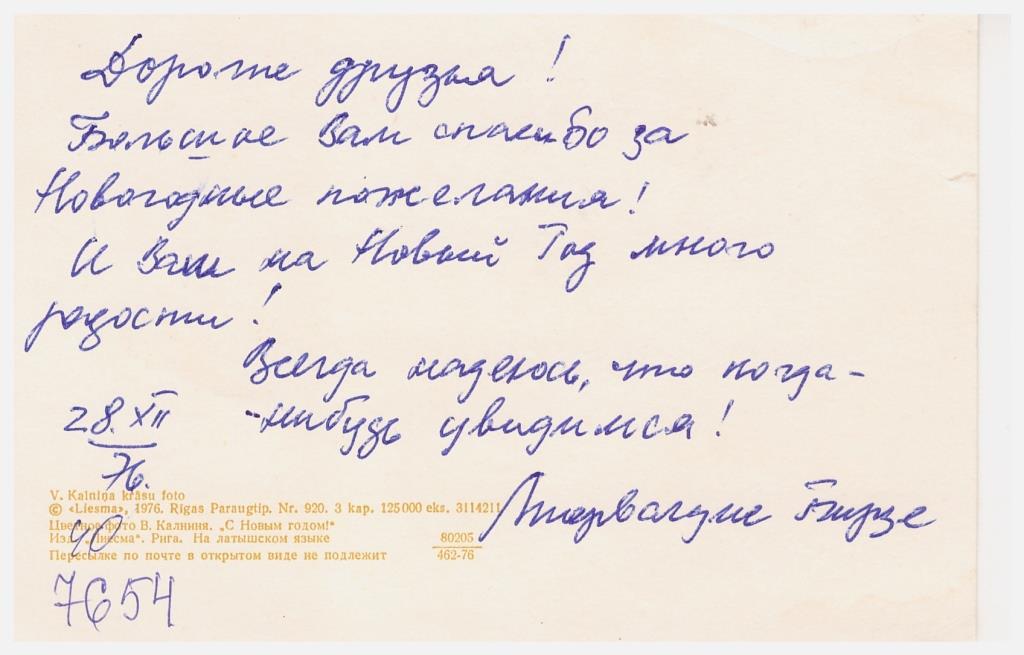 Дорогие друзья!
Большое Вам спасибо за
Новогодние пожелания!
И Вам на Новый Год много
радости!
Всегда надеюсь, что когда-
-нибудь увидимся!
28.XII
76.
Бирзе
V. Kalniņa krāsu foto
© «Liesma», 1976. Rīgas Paraugtip. Nr. 920. 3 kap. 125000 eks. 3114211
Цветное фото В. Калниня. „С Новым годом!“
Изд. „Лиесма“. Рига. На латышском языке
Пересылке по почте в открытом виде не подлежит
80205
462-76
40
7654